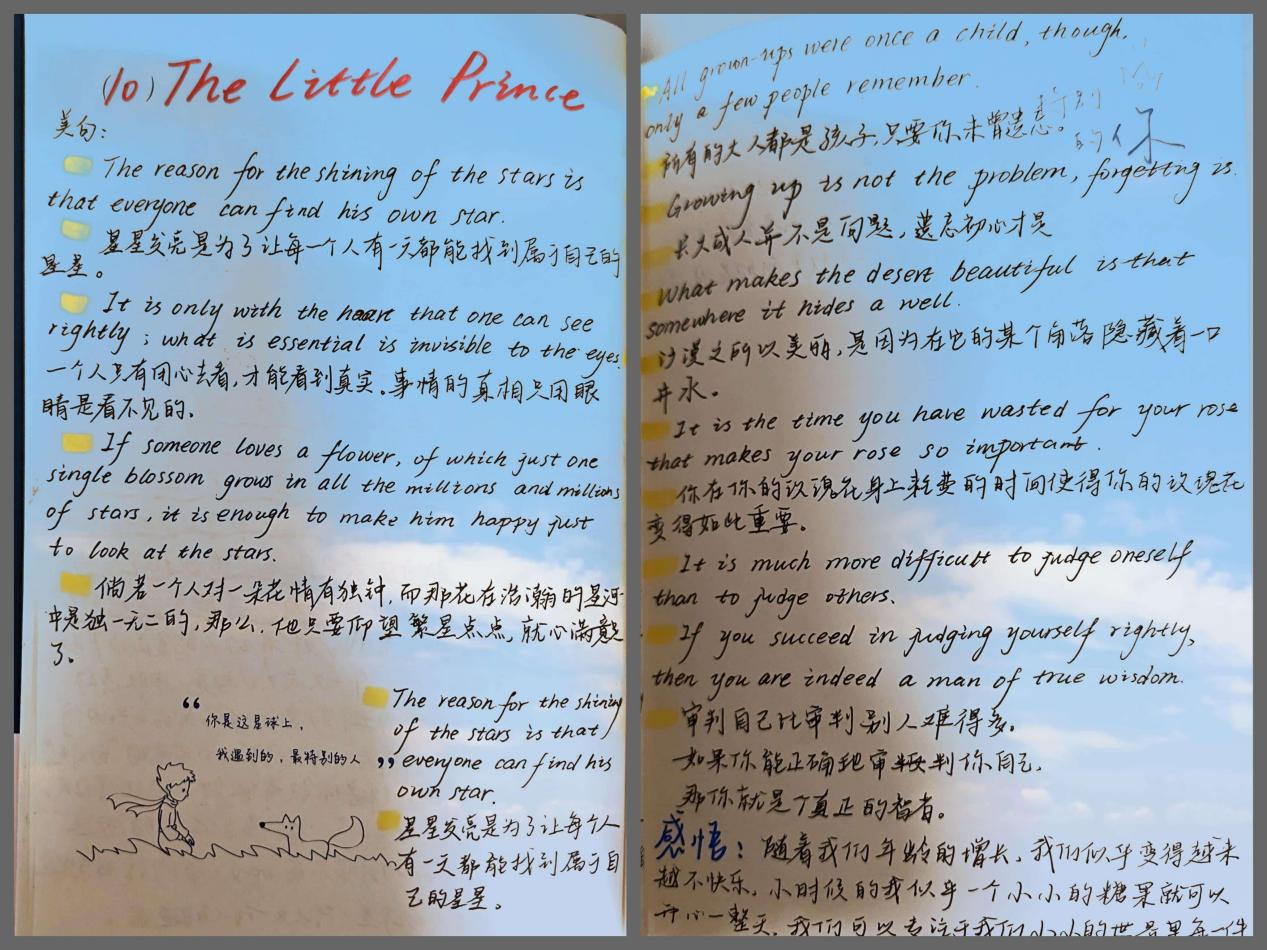 (10) The Little Prince
美句:
The reason for the shining of the stars is
that everyone can find his own star.
星星发亮是为了让每一个人有一天都能找到属于自己的
星星。
It is only with the heart that one can see
rightly; what is essential is invisible to the eyes.
一个人只有用心去看,才能看到真实。事情的真相只用眼
睛是看不见的。
If someone loves a flower, of which just one
single blossom grows in all the millions and millions
of stars, it is enough to make him happy just
to look at the stars.
倘若一个人对一朵花情有独钟,而那花在浩瀚的星河
中是独一无二的,那么,他只要仰望繁星点点,就心满意足
了。
“你是这星球上,
我遇到的,最特别的人”
The reason for the shining
of the stars is that
everyone can find his
own star.
星星发亮是为了让每个人
有一天都能找到属于自
己的星星。
All grown-ups were once a child, though,
only a few people remember.
所有的大人都是孩子,只要你未曾遗忘。
特别
的你
Growing up is not the problem, forgetting is.
长大成人并不是问题,遗忘初心才是
What makes the desert beautiful is that
somewhere it hides a well.
沙漠之所以美丽,是因为在它的某个角落隐藏着一口
井水。
It is the time you have wasted for your rose
that makes your rose so important.
你在你的玫瑰花身上耗费的时间使得你的玫瑰花
变得如此重要。
It is much more difficult to judge oneself
than to judge others.
If you succeed in judging yourself rightly,
then you are indeed a man of true wisdom.
审判自己比审判别人难得多。
如果你能正确地审判你自己,
那你就是个真正的智者。
感悟:随着我们年龄的增长,我们似乎变得越来
越不快乐。小时候的我似乎一个小小的糖果就可以
开心一整天,我们可以专注于我们小小的世界里每一件